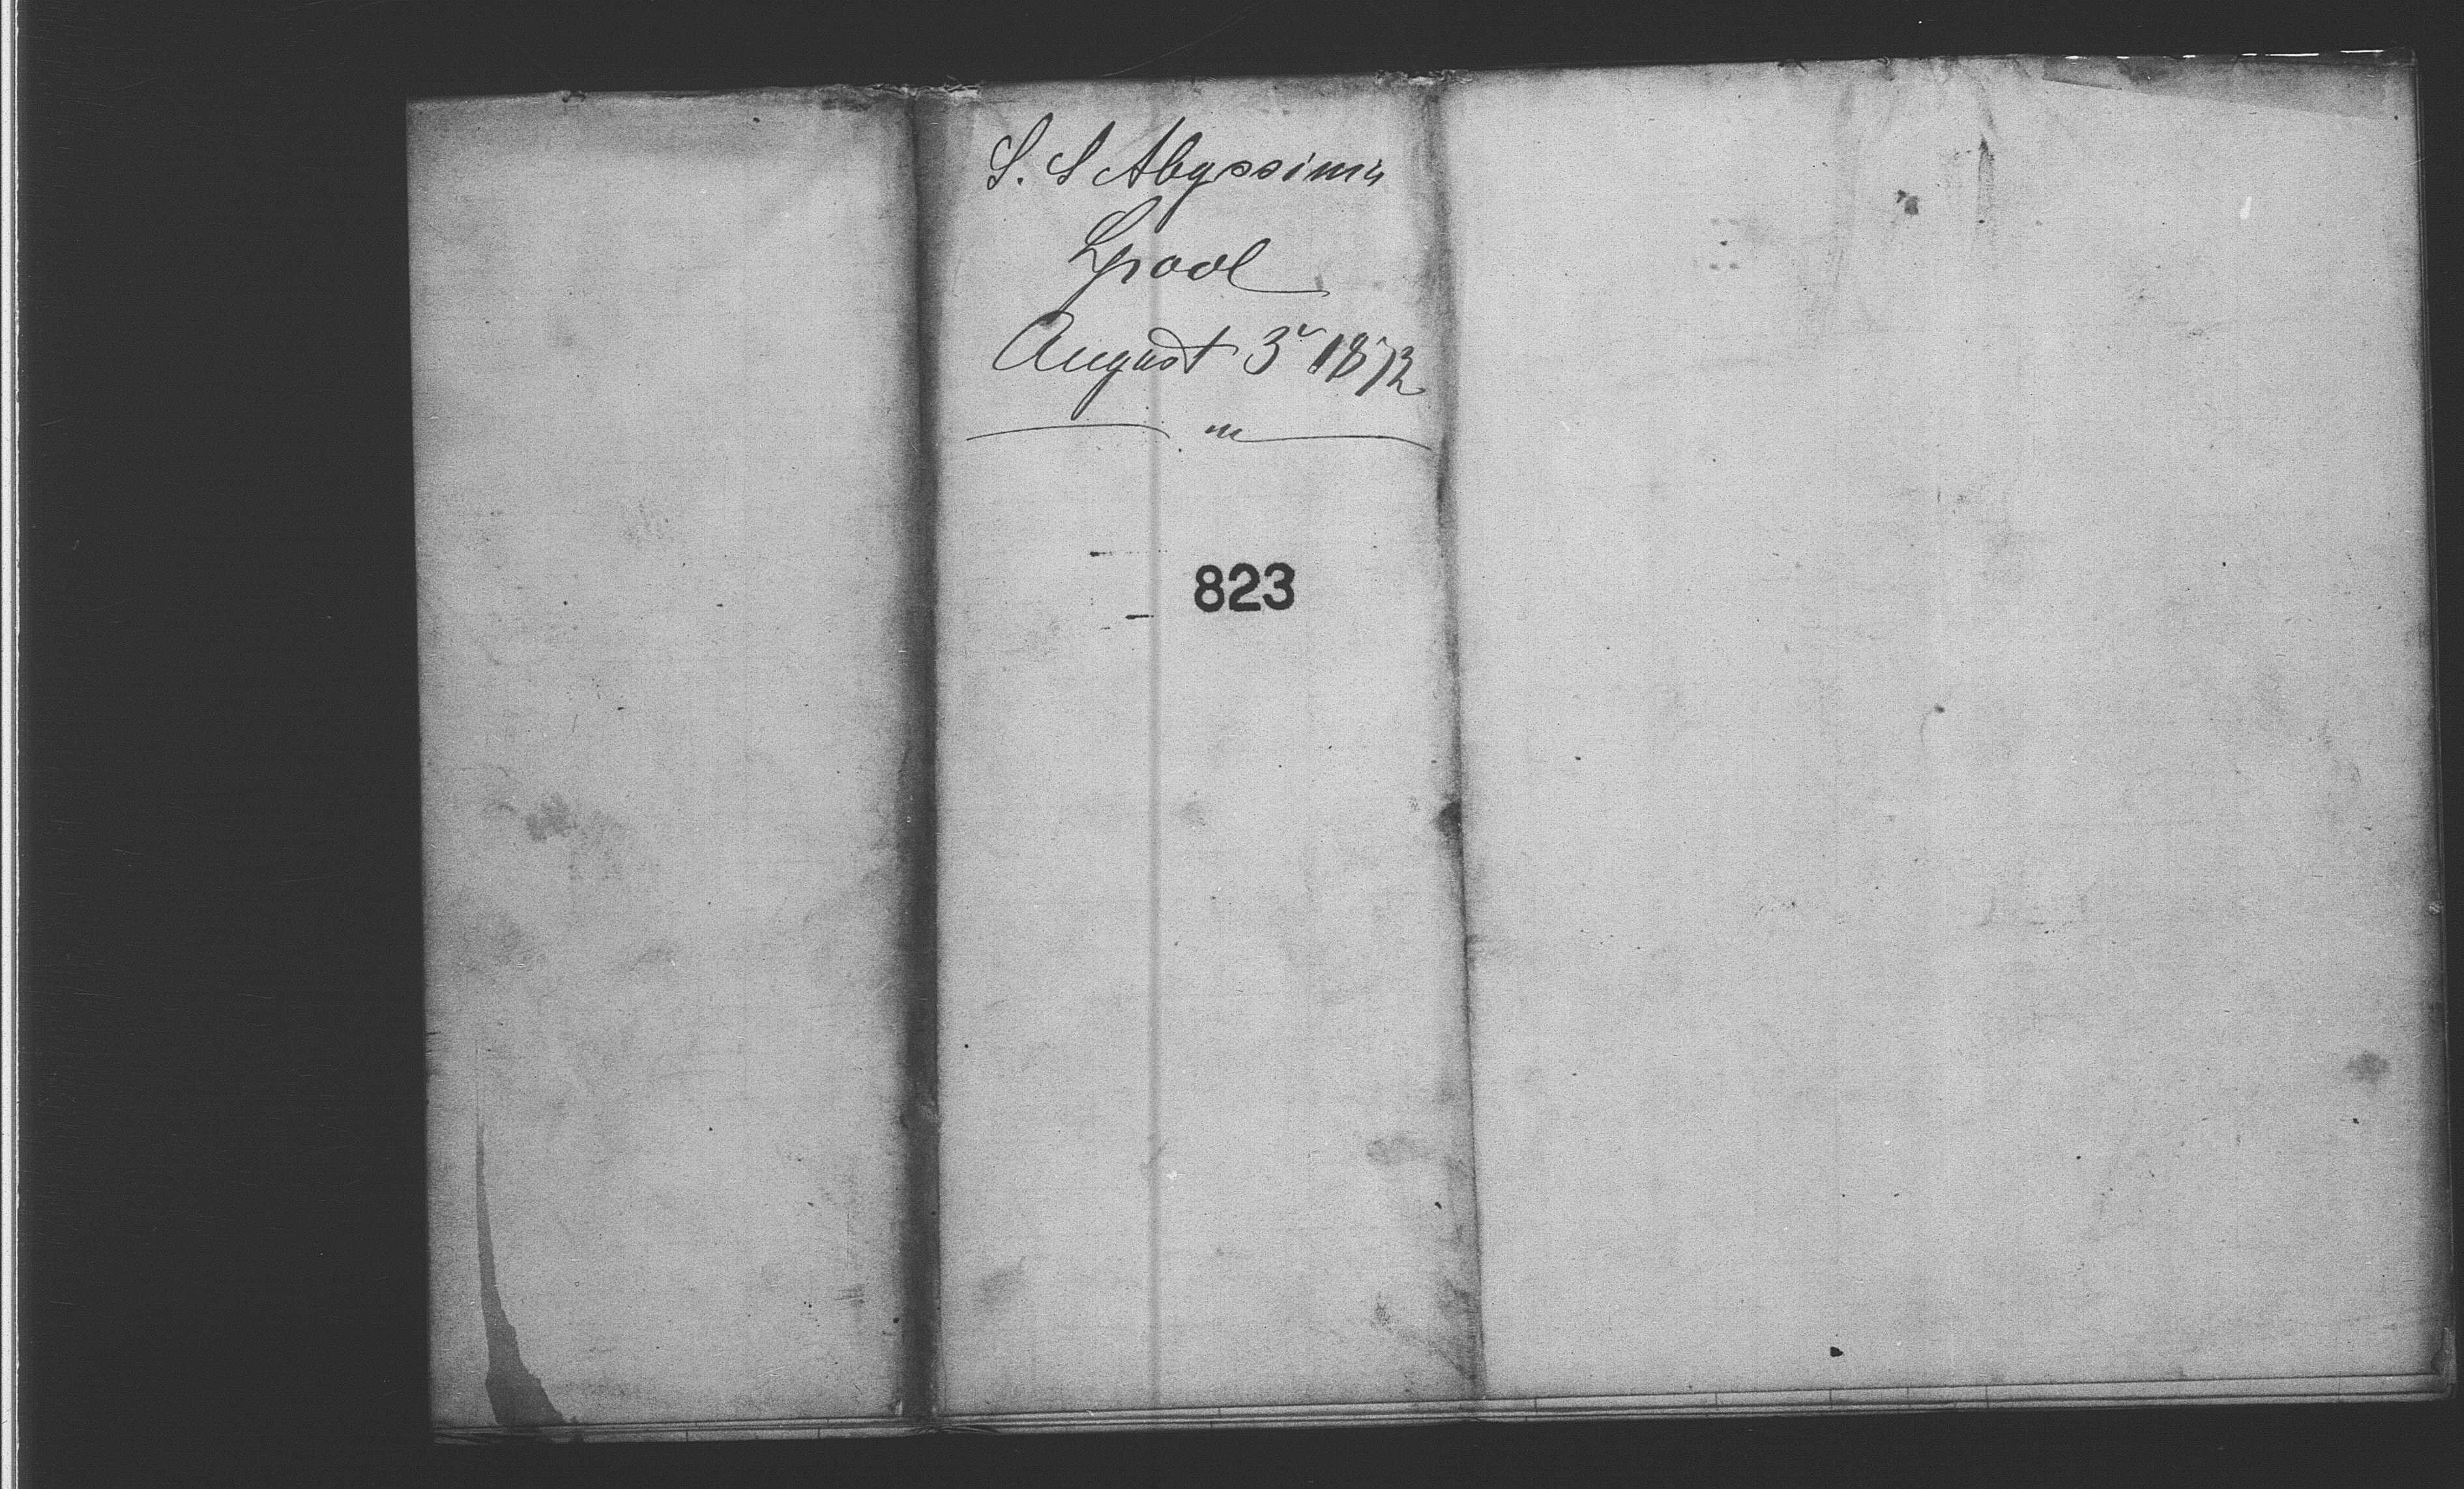 S. S Abyssinia
Lpool
August 3r 1872
823